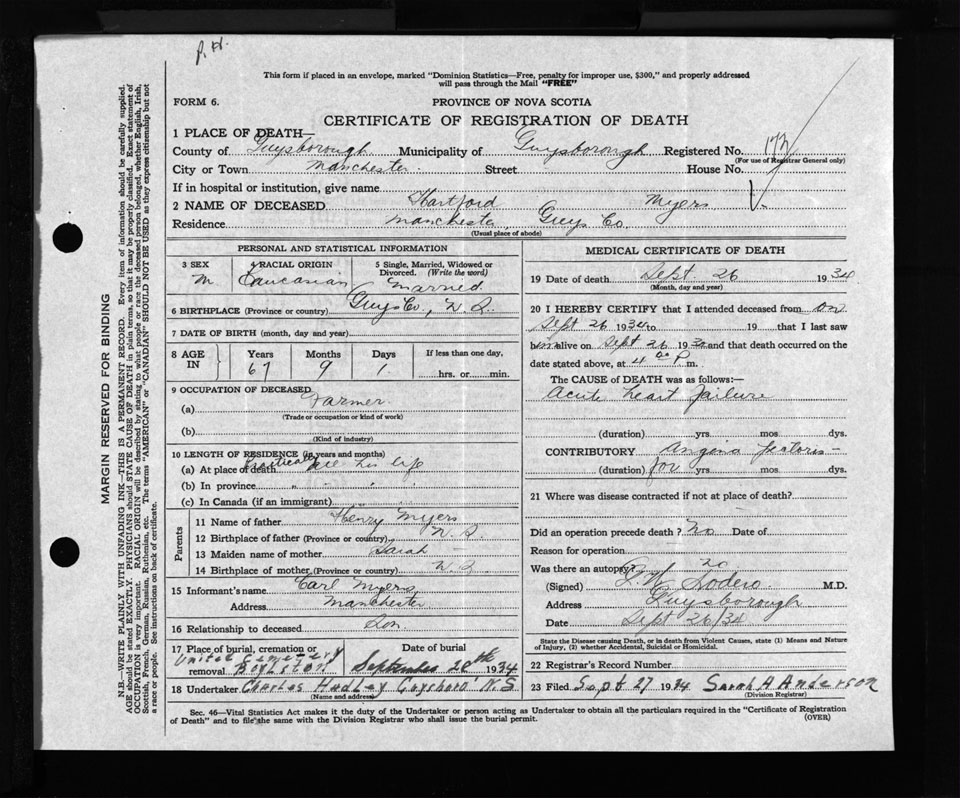 P.H.
This form if placed in an envelope, marked "Dominion Statistics—Free, penalty for improper use, $300," and properly addressed
will pass through the Mail "FREE"
FORM 6.
PROVINCE OF NOVA SCOTIA
CERTIFICATE OF REGISTRATION OF DEATH
1 PLACE OF DEATH—
County of Guysborough Municipality of Guysborough Registered No. 172
(For use of Registrar General only)
City or Town Manchester Street House No.
If in hospital or institution, give name
2 NAME OF DECEASED Hartford Myers
Residence Manchester, Guys Co.
(Usual place of abode)
PERSONAL AND STATISTICAL INFORMATION
3 SEX 4 RACIAL ORIGIN 5 Single, Married, Widowed or
Divorced. (Write the word)
M Caucasian Married
6 BIRTHPLACE (Province or country) Guys Co., N.S.
7 DATE OF BIRTH (month, day and year)
8 AGE IN Years Months Days If less than one day,
67 9 1 hrs. or min.
9 OCCUPATION OF DECEASED
(a) Farmer
(Trade or occupation or kind of work)
(b)
(Kind of industry)
10 LENGTH OF RESIDENCE (in years and months)
(a) At place of death practically all his life
(b) In province " — " " "
(c) In Canada (if an immigrant)
Parents
11 Name of father Henry Myers
12 Birthplace of father (Province or country) N.S.
13 Maiden name of mother Sarah —
14 Birthplace of mother (Province or country) N.S.
15 Informant's name Carl Myers
Address Manchester
16 Relationship to deceased Son
17 Place of burial, cremation or removal United Cemetery Boylston
Date of burial
September 28th 1934
18 Undertaker Charles Hadley Guysboro N.S
(Name and address)
MEDICAL CERTIFICATE OF DEATH
19 Date of death Sept 26 1934
(Month, day and year)
20 I HEREBY CERTIFY that I attended deceased from on
Sept 26 1934 to 19 that I last saw
him alive on Sept 26 1934 and that death occurred on the
date stated above, at 4 00 P. m.
The CAUSE of DEATH was as follows:—
Acute heart failure
(duration) yrs. mos. dys.
CONTRIBUTORY Angina pectoris —
(duration) for yrs. mos. dys.
21 Where was disease contracted if not at place of death?
—
Did an operation precede death? No Date of
Reason for operation
Was there an autopsy? no
(Signed) Sodero M.D.
Address Guysborough
Date Sept 26/34
State the Disease causing Death, or in death from Violent Causes, state (1) Means and Nature
of Injury, (2) whether Accidental, Suicidal or Homicidal.
22 Registrar's Record Number
23 Filed Sept 27 1934 Sarah A Anderson
(Division Registrar)
Sec. 46—Vital Statistics Act makes it the duty of the Undertaker or person acting as Undertaker to obtain all the particulars required in the "Certificate of Registration
of Death" and to file the same with the Division Registrar who shall issue the burial permit.
(OVER)
MARGIN RESERVED FOR BINDING
N.B.—WRITE PLAINLY WITH UNFADING INK—THIS IS A PERMANENT RECORD. Every item of information should be carefully supplied.
AGE should be stated EXACTLY. PHYSICIANS should STATE CAUSE OF DEATH in plain terms, so that it may be properly classified. Exact statement of
OCCUPATION is very important. RACIAL ORIGIN will be described by stating to what people or race the deceased person belonged, whether English, Irish,
Scottish, French, German, Russian, Ruthenian, etc. The terms "AMERICAN" or "CANADIAN" SHOULD NOT BE USED as they express citizenship but not
a race or people. See instructions on back of certificate.